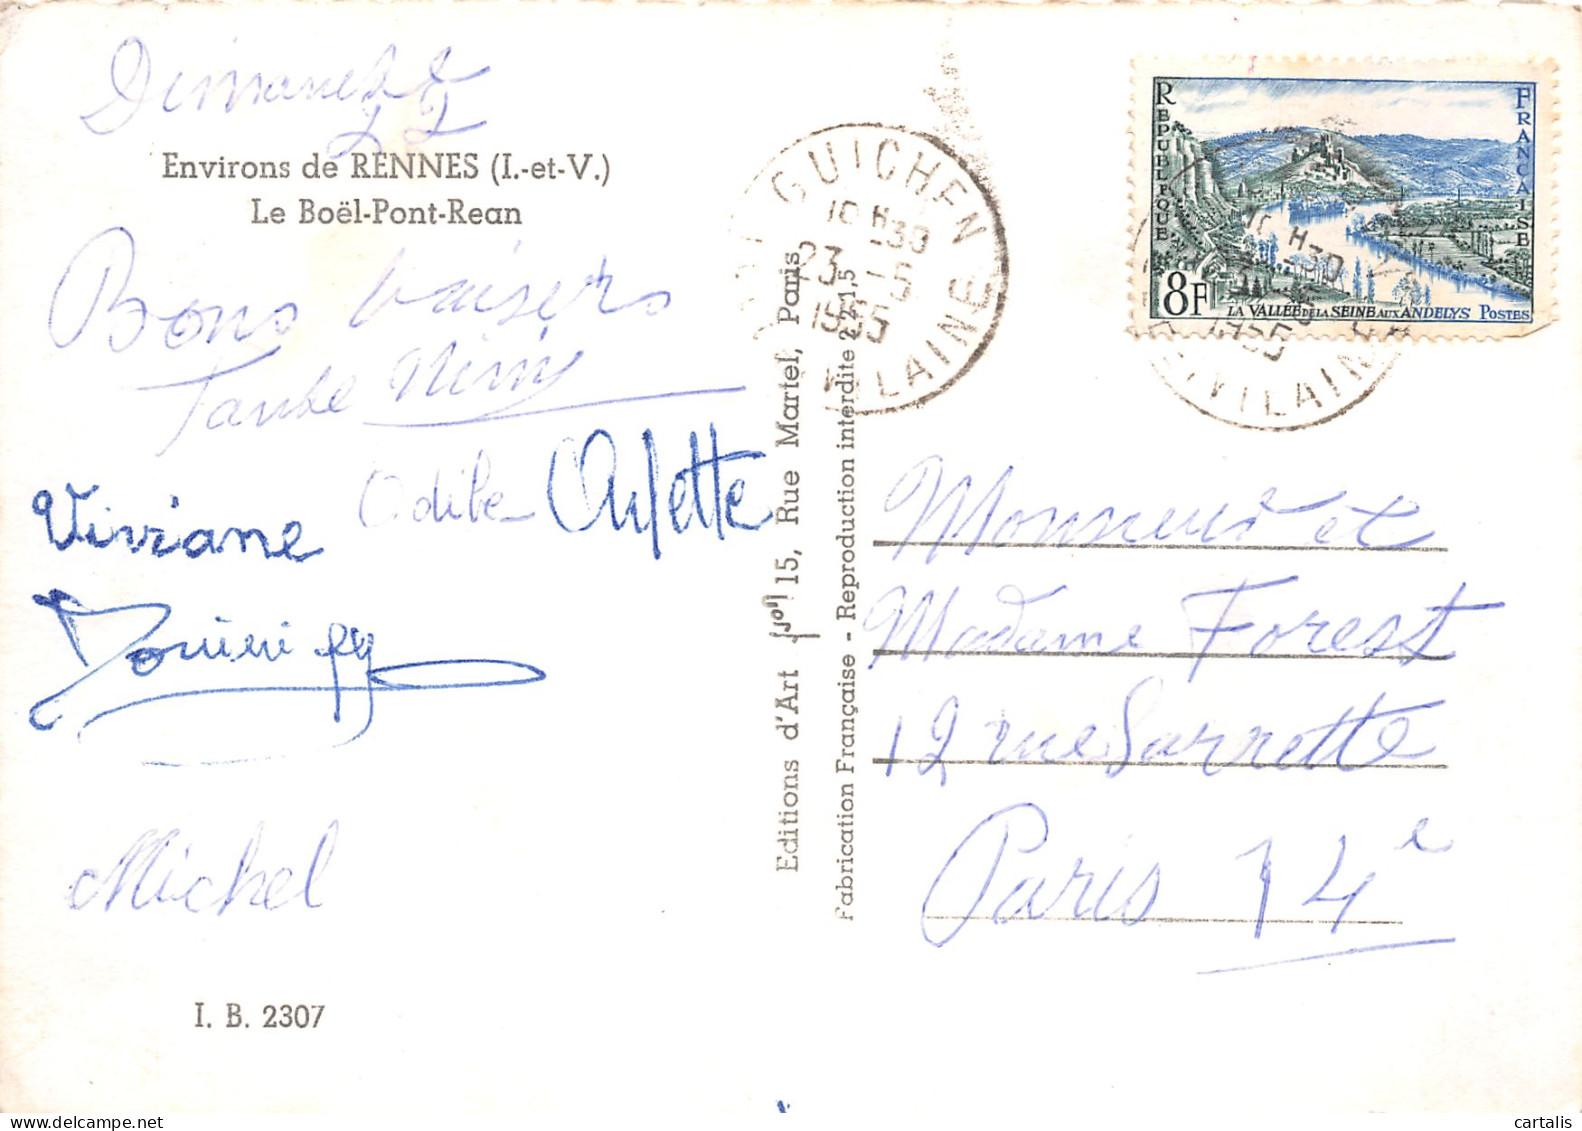 Dimanche
22
Environs de RENNES (I.-et-V.)
Le Boël-Pont-Rean
Bons baisers
Tante Nini
Odile Arlette
Viviane
Michel
I. B. 2307
Editions d'Art Jos 15, Rue Martel, Paris
Fabrication Française - Reproduction interdite 2.21,5
GUICHEN
10 H30
23 -5
1955
VILAINE
REPUBLIQUE FRANÇAISE
8F
LA VALLEE DE LA SEINE AUX ANDELYS POSTES
H30
1955
VILAIN
Monsieur et
Madame Forest
12 rue Sarrette
Paris 14e
delcampe.net
cartalis